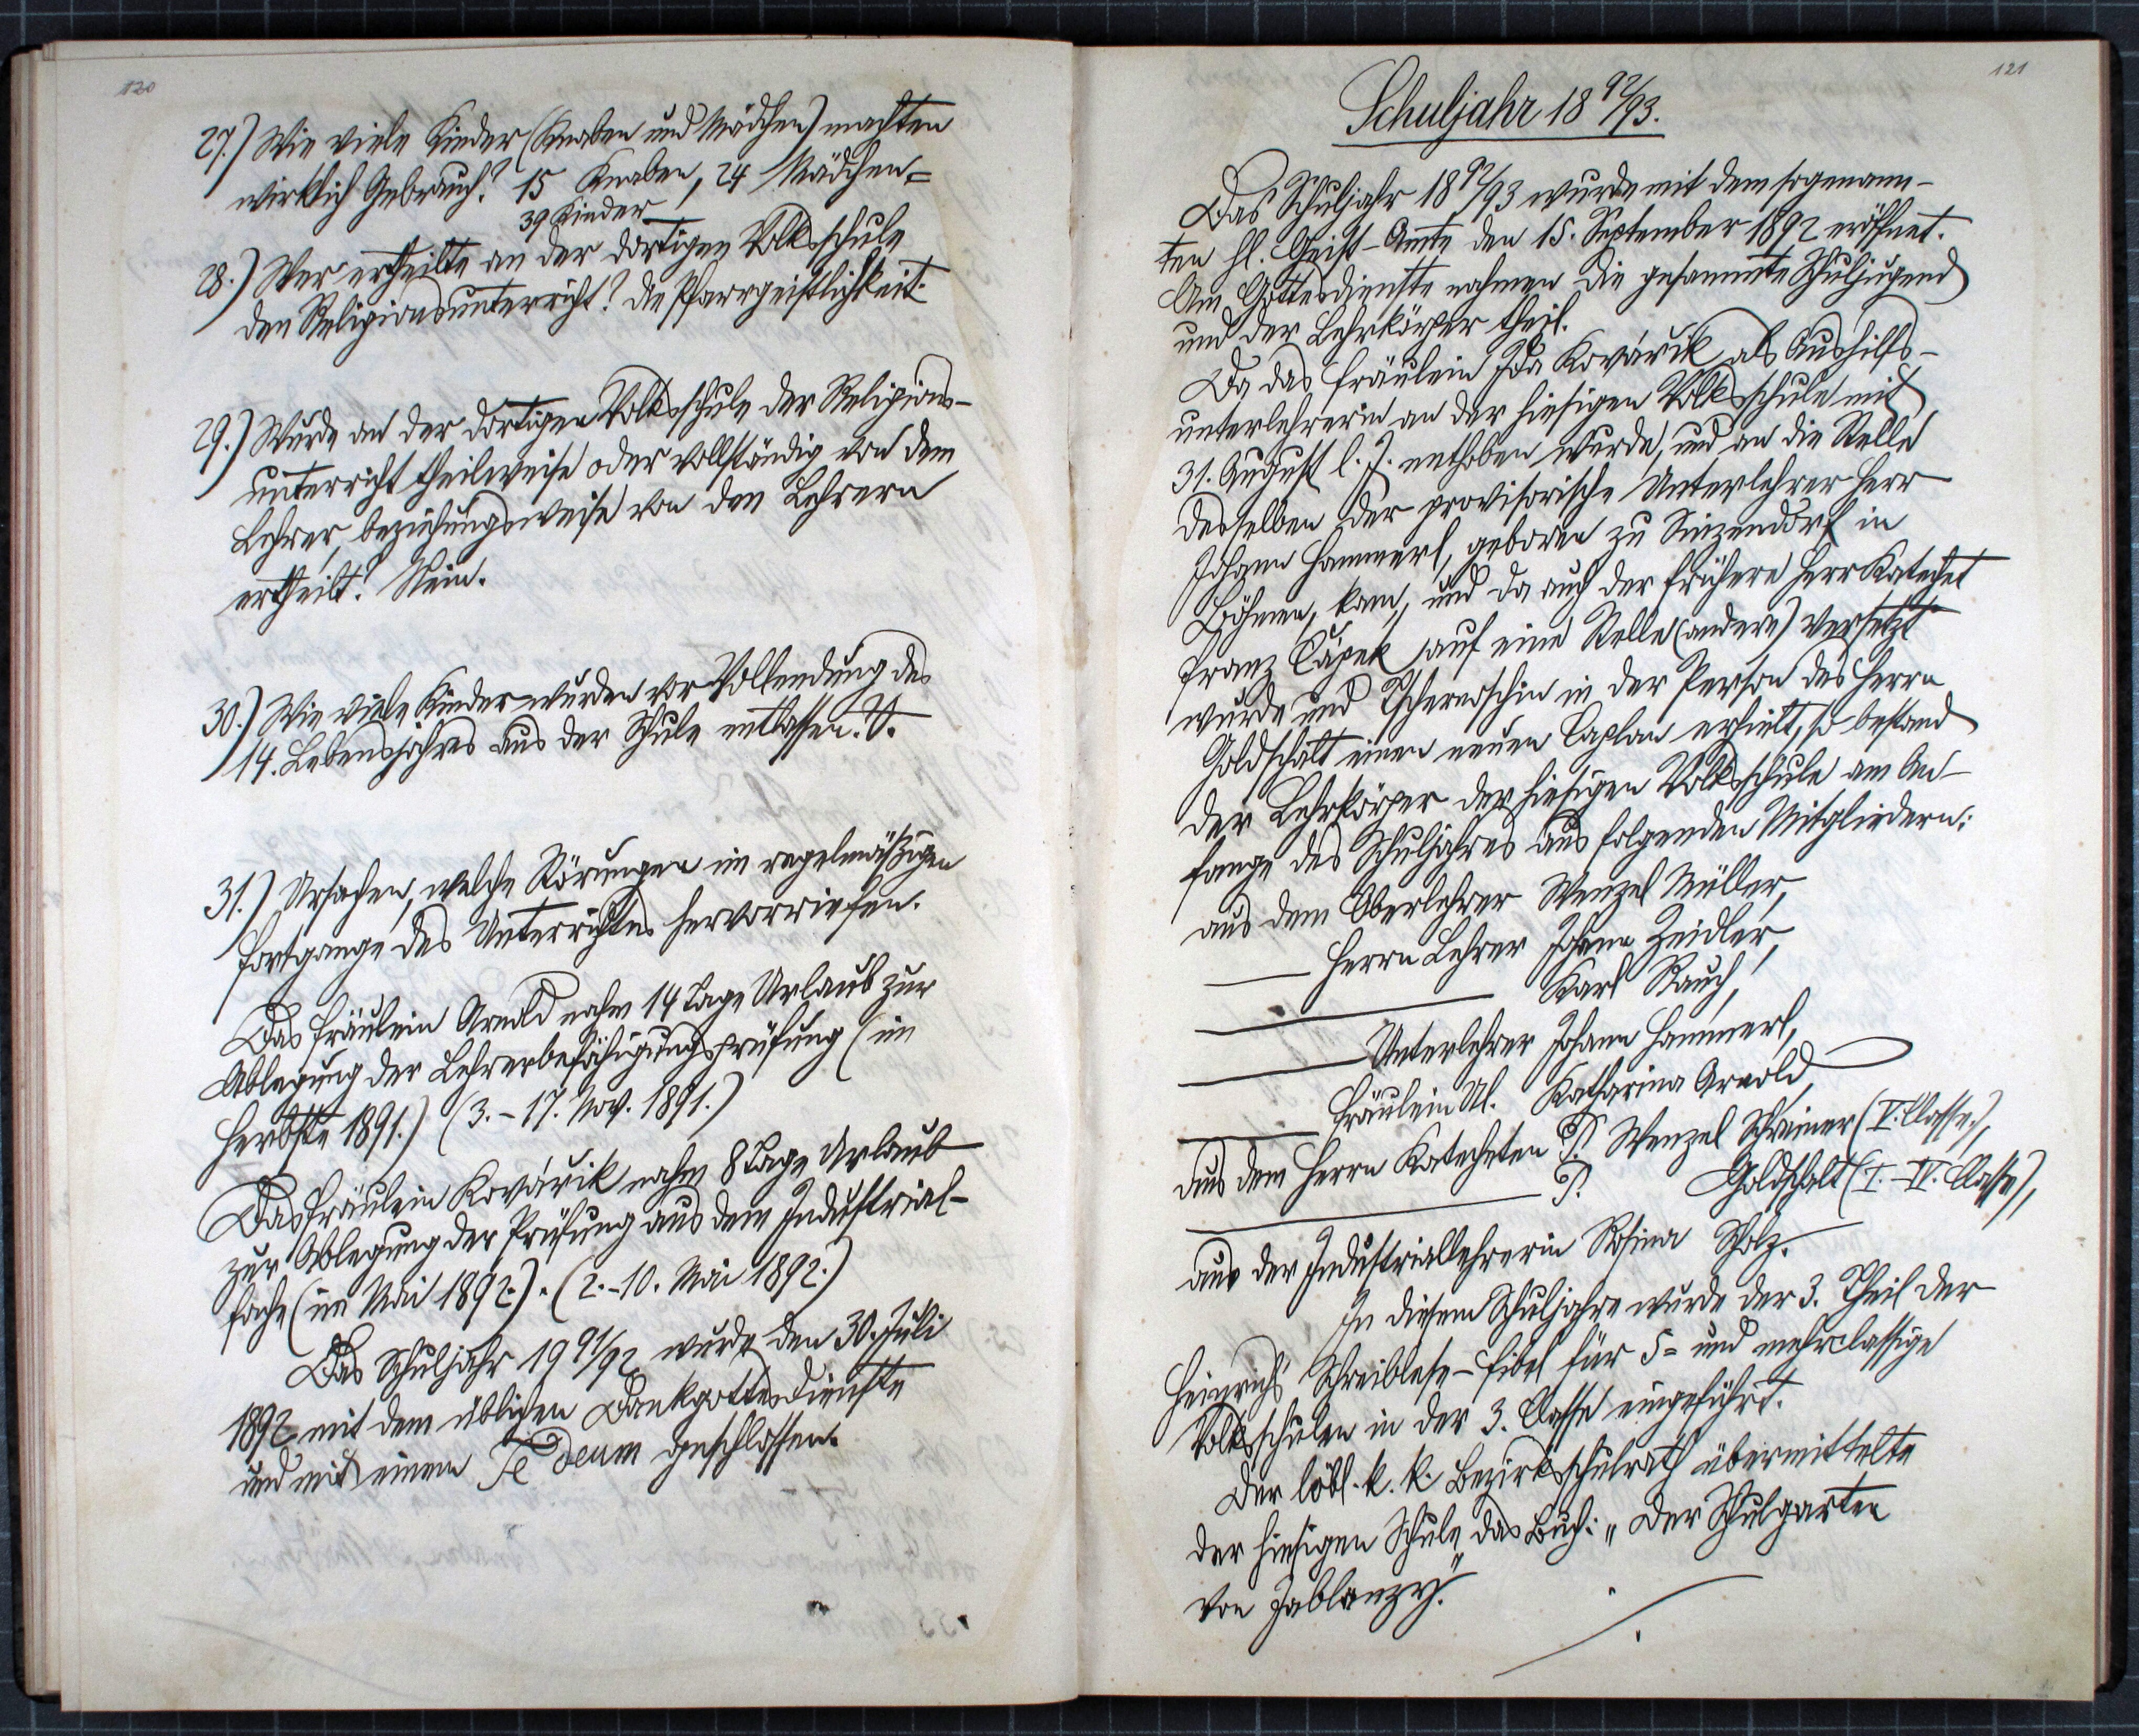 120
27.) Wie viele Kinder (Knaben und Mädchen) machten
wirklich Gebrauch? 15 Knaben, 24 Mädchen =
39 Kinder
28.) Wer ertheilte an der dortigen Volksschule
den Religionsunterricht? Die Pfarrgeistlichkeit.
29.) Wurde an der dortigen Volksschule der Religions-
unterricht theilweise oder vollständig von dem
Lehrer, beziehungsweise von den Lehrern
ertheilt? Nein.
30.) Wie viele Kinder wurden vor Vollendung des
14. Lebensjahres aus der Schule entlassen.
31.) Ursachen, welche Störungen im regelmäßigen
Fortgange des Unterrichtes hervorriefen.
Das Fräulein Arnold nahm 14 Tage Urlaub zur
Ablegung der Lehrerbefähigungsprüfung (im
Herbste 1891.) (3.-17. Nov. 1891.)
Das Fräulein Kovářik nahm 8 Tage Urlaub
zur Ablegung der Prüfung aus dem Industrial-
fache (im Mai 1892.). (2.-10. Mai 1892.)
Das Schuljahr 19 91/92 wurde den 30. Juli
1892 mit dem üblichen Dankgottesdienste
und mit einem Te Deum geschlossen.
121
Schuljahr 18 92/93.
Das Schuljahr 18 92/93 wurde mit dem sogenann-
ten hl. Geist-Amte den 15. September 1892 eröffnet.
Am Gottesdienste nahmen die gesammte Schuljugend
und der Lehrkörper theil.
Da das Fräulein Ida Kovářik als Aushilfs-
unterlehrerin an der hiesigen Volksschule mit
31. August l. J. enthoben wurde, und an die Stelle
desselben der provisorische Unterlehrer Herr
Johann Hammerl, geboren zu Sinzendorf in
Böhmen, kam, und da auch der frühere Herr Katechet
Franz Čápek auf eine Stelle (andere) versetzt
wurde und Tschernoschin in der Person des Herrn
Goldschalt einen neuen Caplan erhielt, so bestand
der Lehrkörper der hiesigen Volksschule am An-
fange des Schuljahres aus folgenden Mitgliedern:
aus dem Oberlehrer Wenzel Müller,
— Herrn Lehrer Johann Zeidler,
— Karl Rauch,
— Unterlehrer Johann Hammerl,
— Fräulein Ul. Katharina Arnold,
aus dem Herrn Katecheten P. Wenzel Schreiner (V. Classe),
— P. Goldschalt (I.-IV. Classe),
aus der Industriallehrerin Rosina Scholz.
In diesem Schuljahre wurde der 3. Theil der
Heinrichs Schreiblese-Fibel für 5= und mehrclassige
Volksschulen in der 3. Classe eingeführt.
Der löbl. k. k. Bezirksschulrath übermittelte
der hiesigen Schule das Buch: „Der Schulgarten
von Jablanzy."